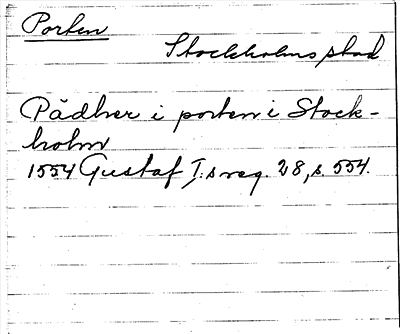 Porten
Stockholms stad
Rådher i porten i Stock-
holm
1554 Gustaf I:s reg. 28, s. 554.